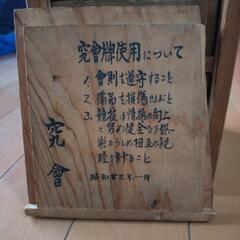 究會牌使用について
1. 會則を遵守すること
2. 備品を損傷せぬこと
3. 競技は情操の向上
と努め健全なる娯
楽たらしめ相互の親
睦を計ること
昭和 三年 一月
究會